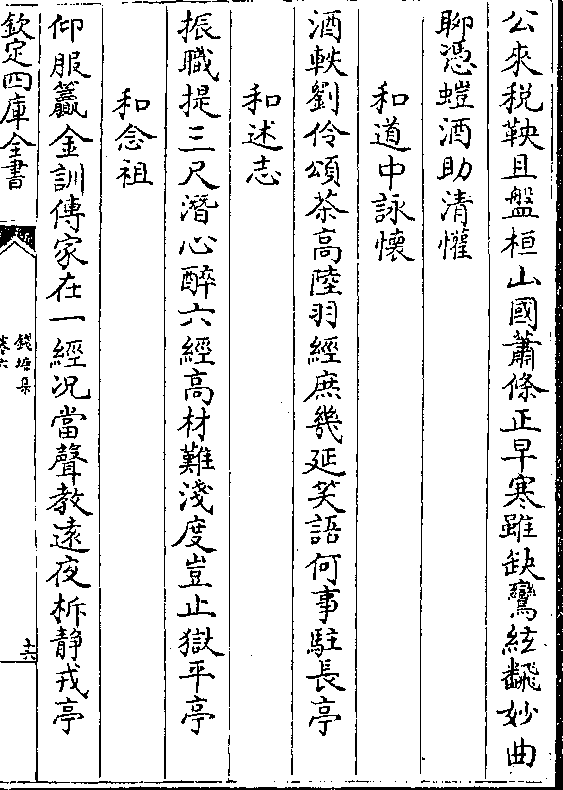 公來税鞅且盤桓山國蕭條正早寒雖缺鸞絃飜妙曲
聊憑螘酒助清懽
和道中詠懷
酒軼劉伶頌茶高陸羽經庶幾延笑語何事駐長亭
和述志
振職提三尺潛心醉六經高材難淺度豈止獄平亭
和念祖
仰服籯金訓傳家在一經况當聲教遠夜柝静戎亭
欽定四庫全書
錢塘集
卷六
十六